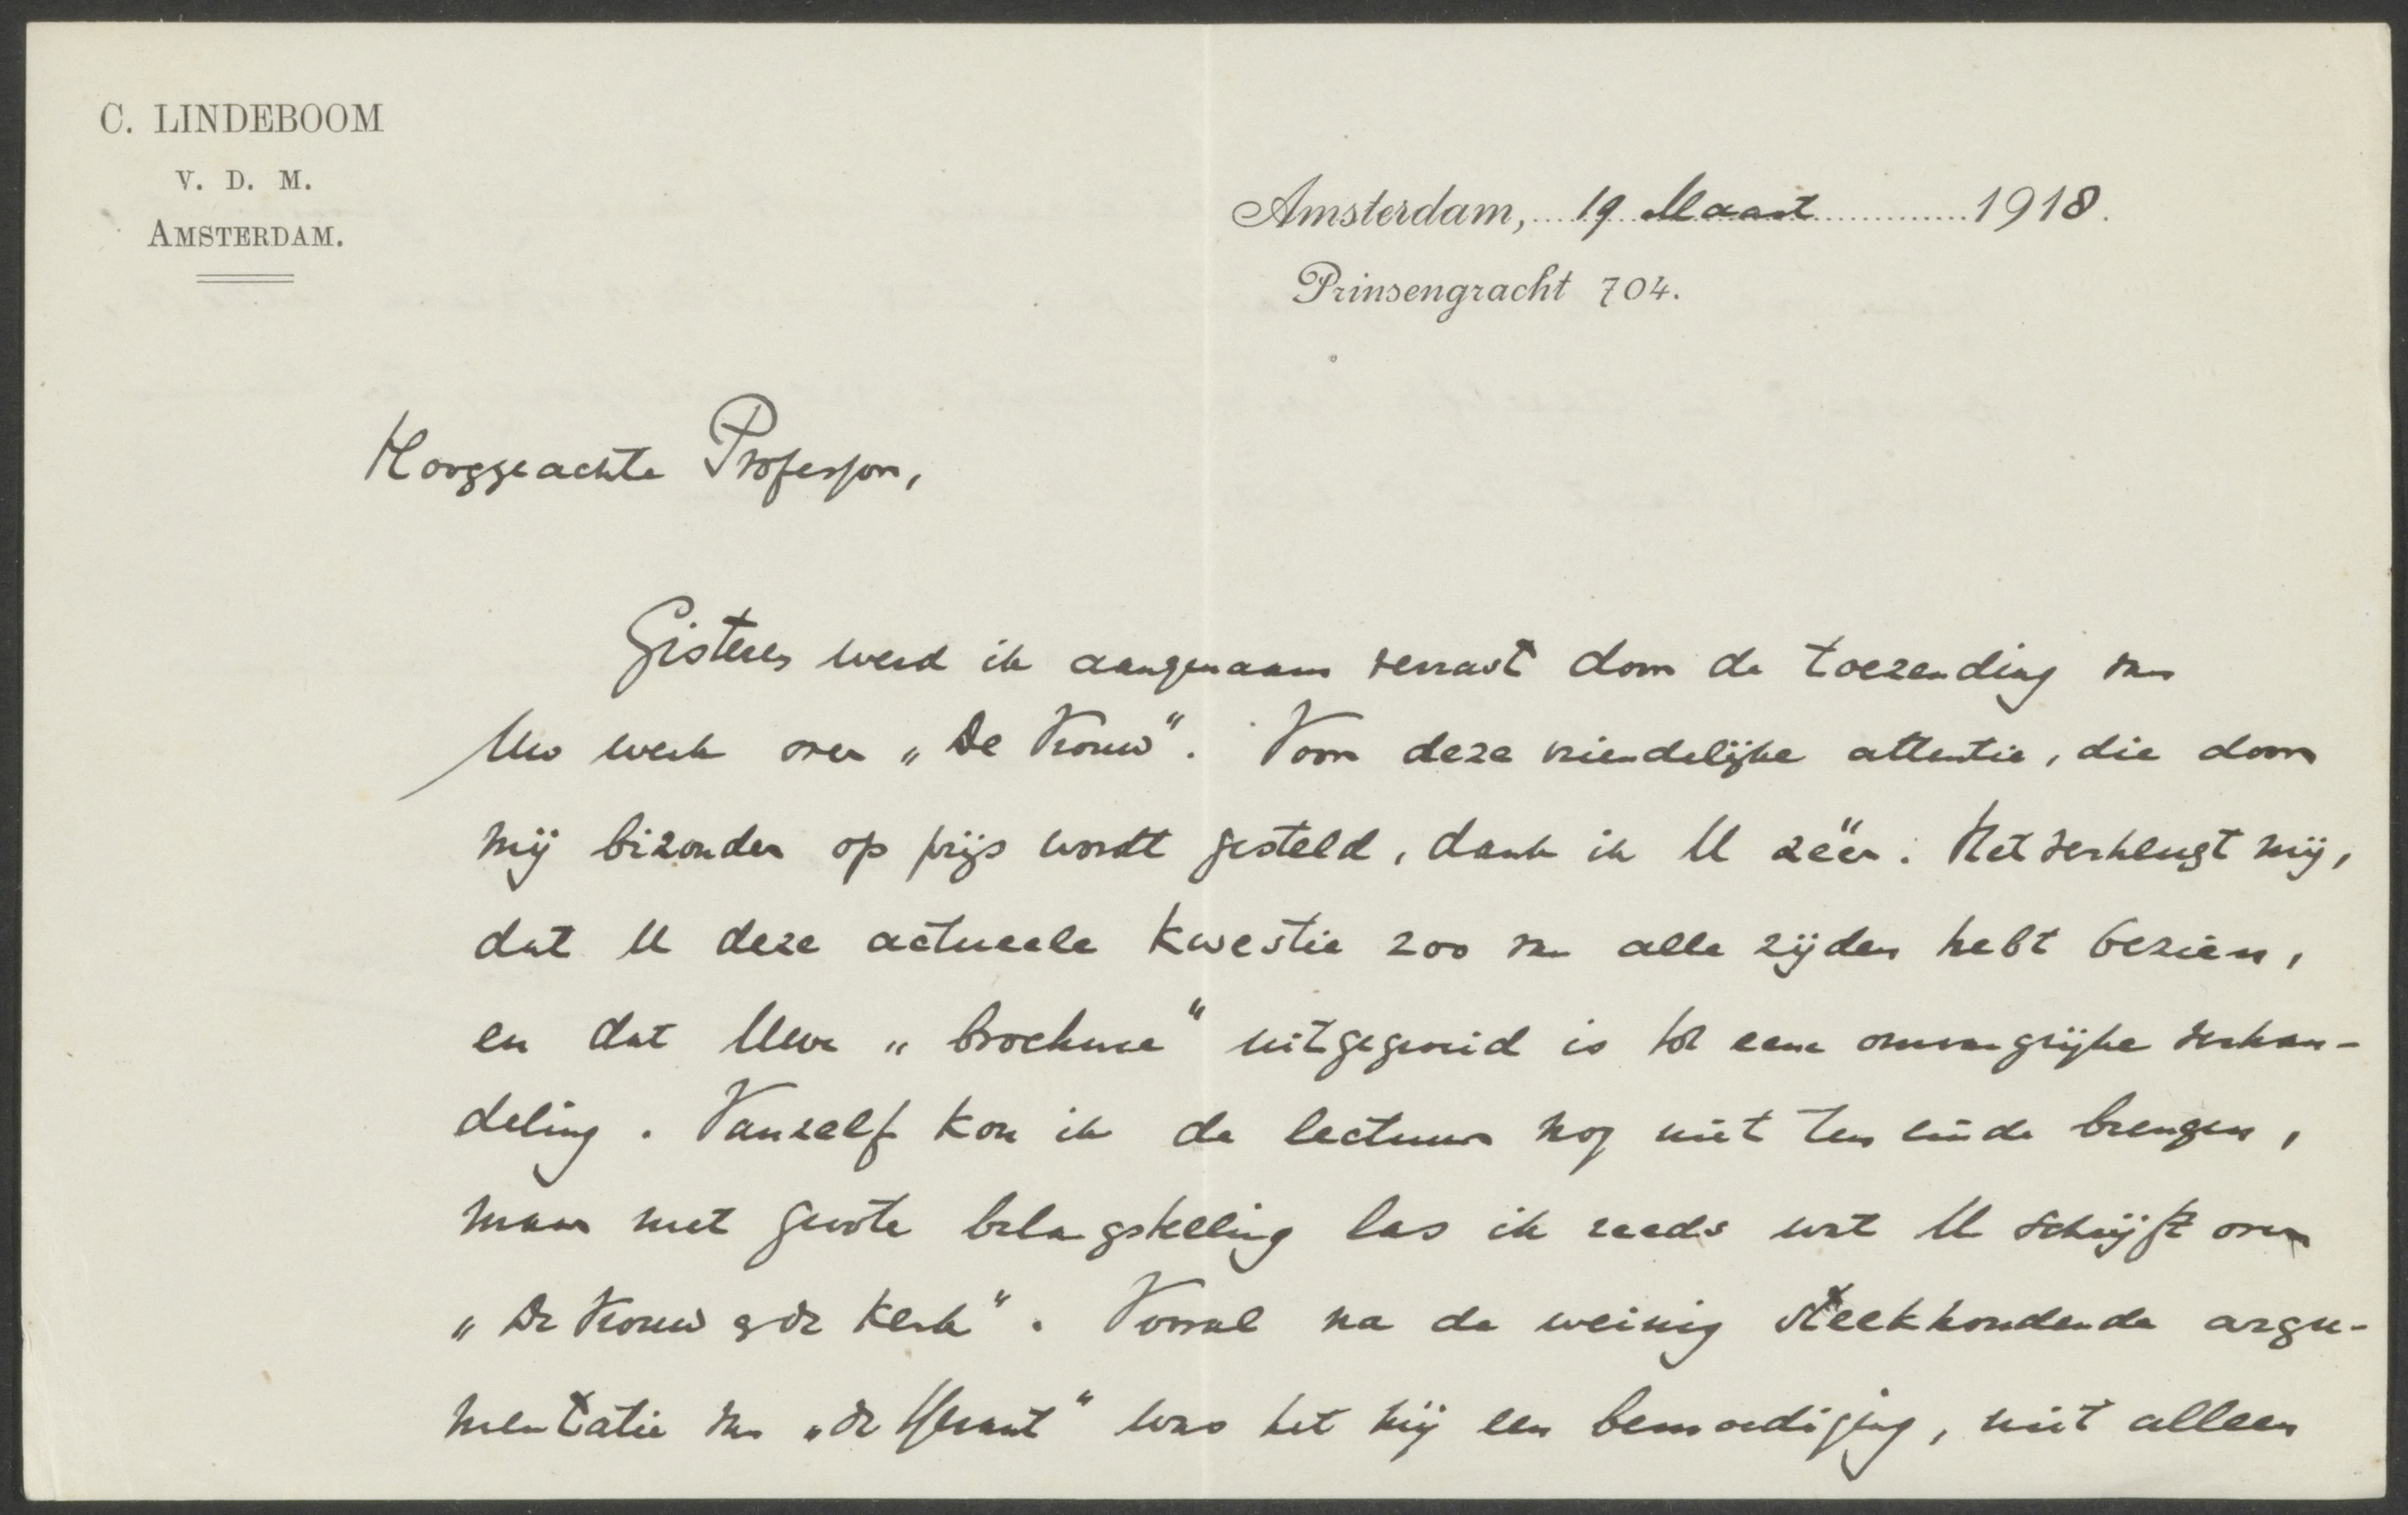 C. LINDEBOOM
V. D. M.
AMSTERDAM.
Amsterdam, 19 Maart 1918.
Prinsengracht 704.
Hooggeachte Professor,
Gisteren werd ik aangenaam verrast door de toezending van
Uw werk over „De Vrouw". Voor deze vriendelijke attentie, die door
mij bizonder op prijs wordt gesteld, dank ik U zéér. Het verheugt mij,
dat U deze actueele kwestie zoo van alle zijden hebt bezien,
en dat Uwe „brochure" uitgegroeid is tot eene omvangrijke verhan-
deling. Vanzelf kon ik de lectuur nog niet ten einde brengen,
maar met groote belangstelling las ik reeds wat U schrijft over
„De Vrouw & de Kerk". Vooral na de weinig steekhoudende argu-
mentatie van „de Heraut" was het mij een bemoediging, niet alleen